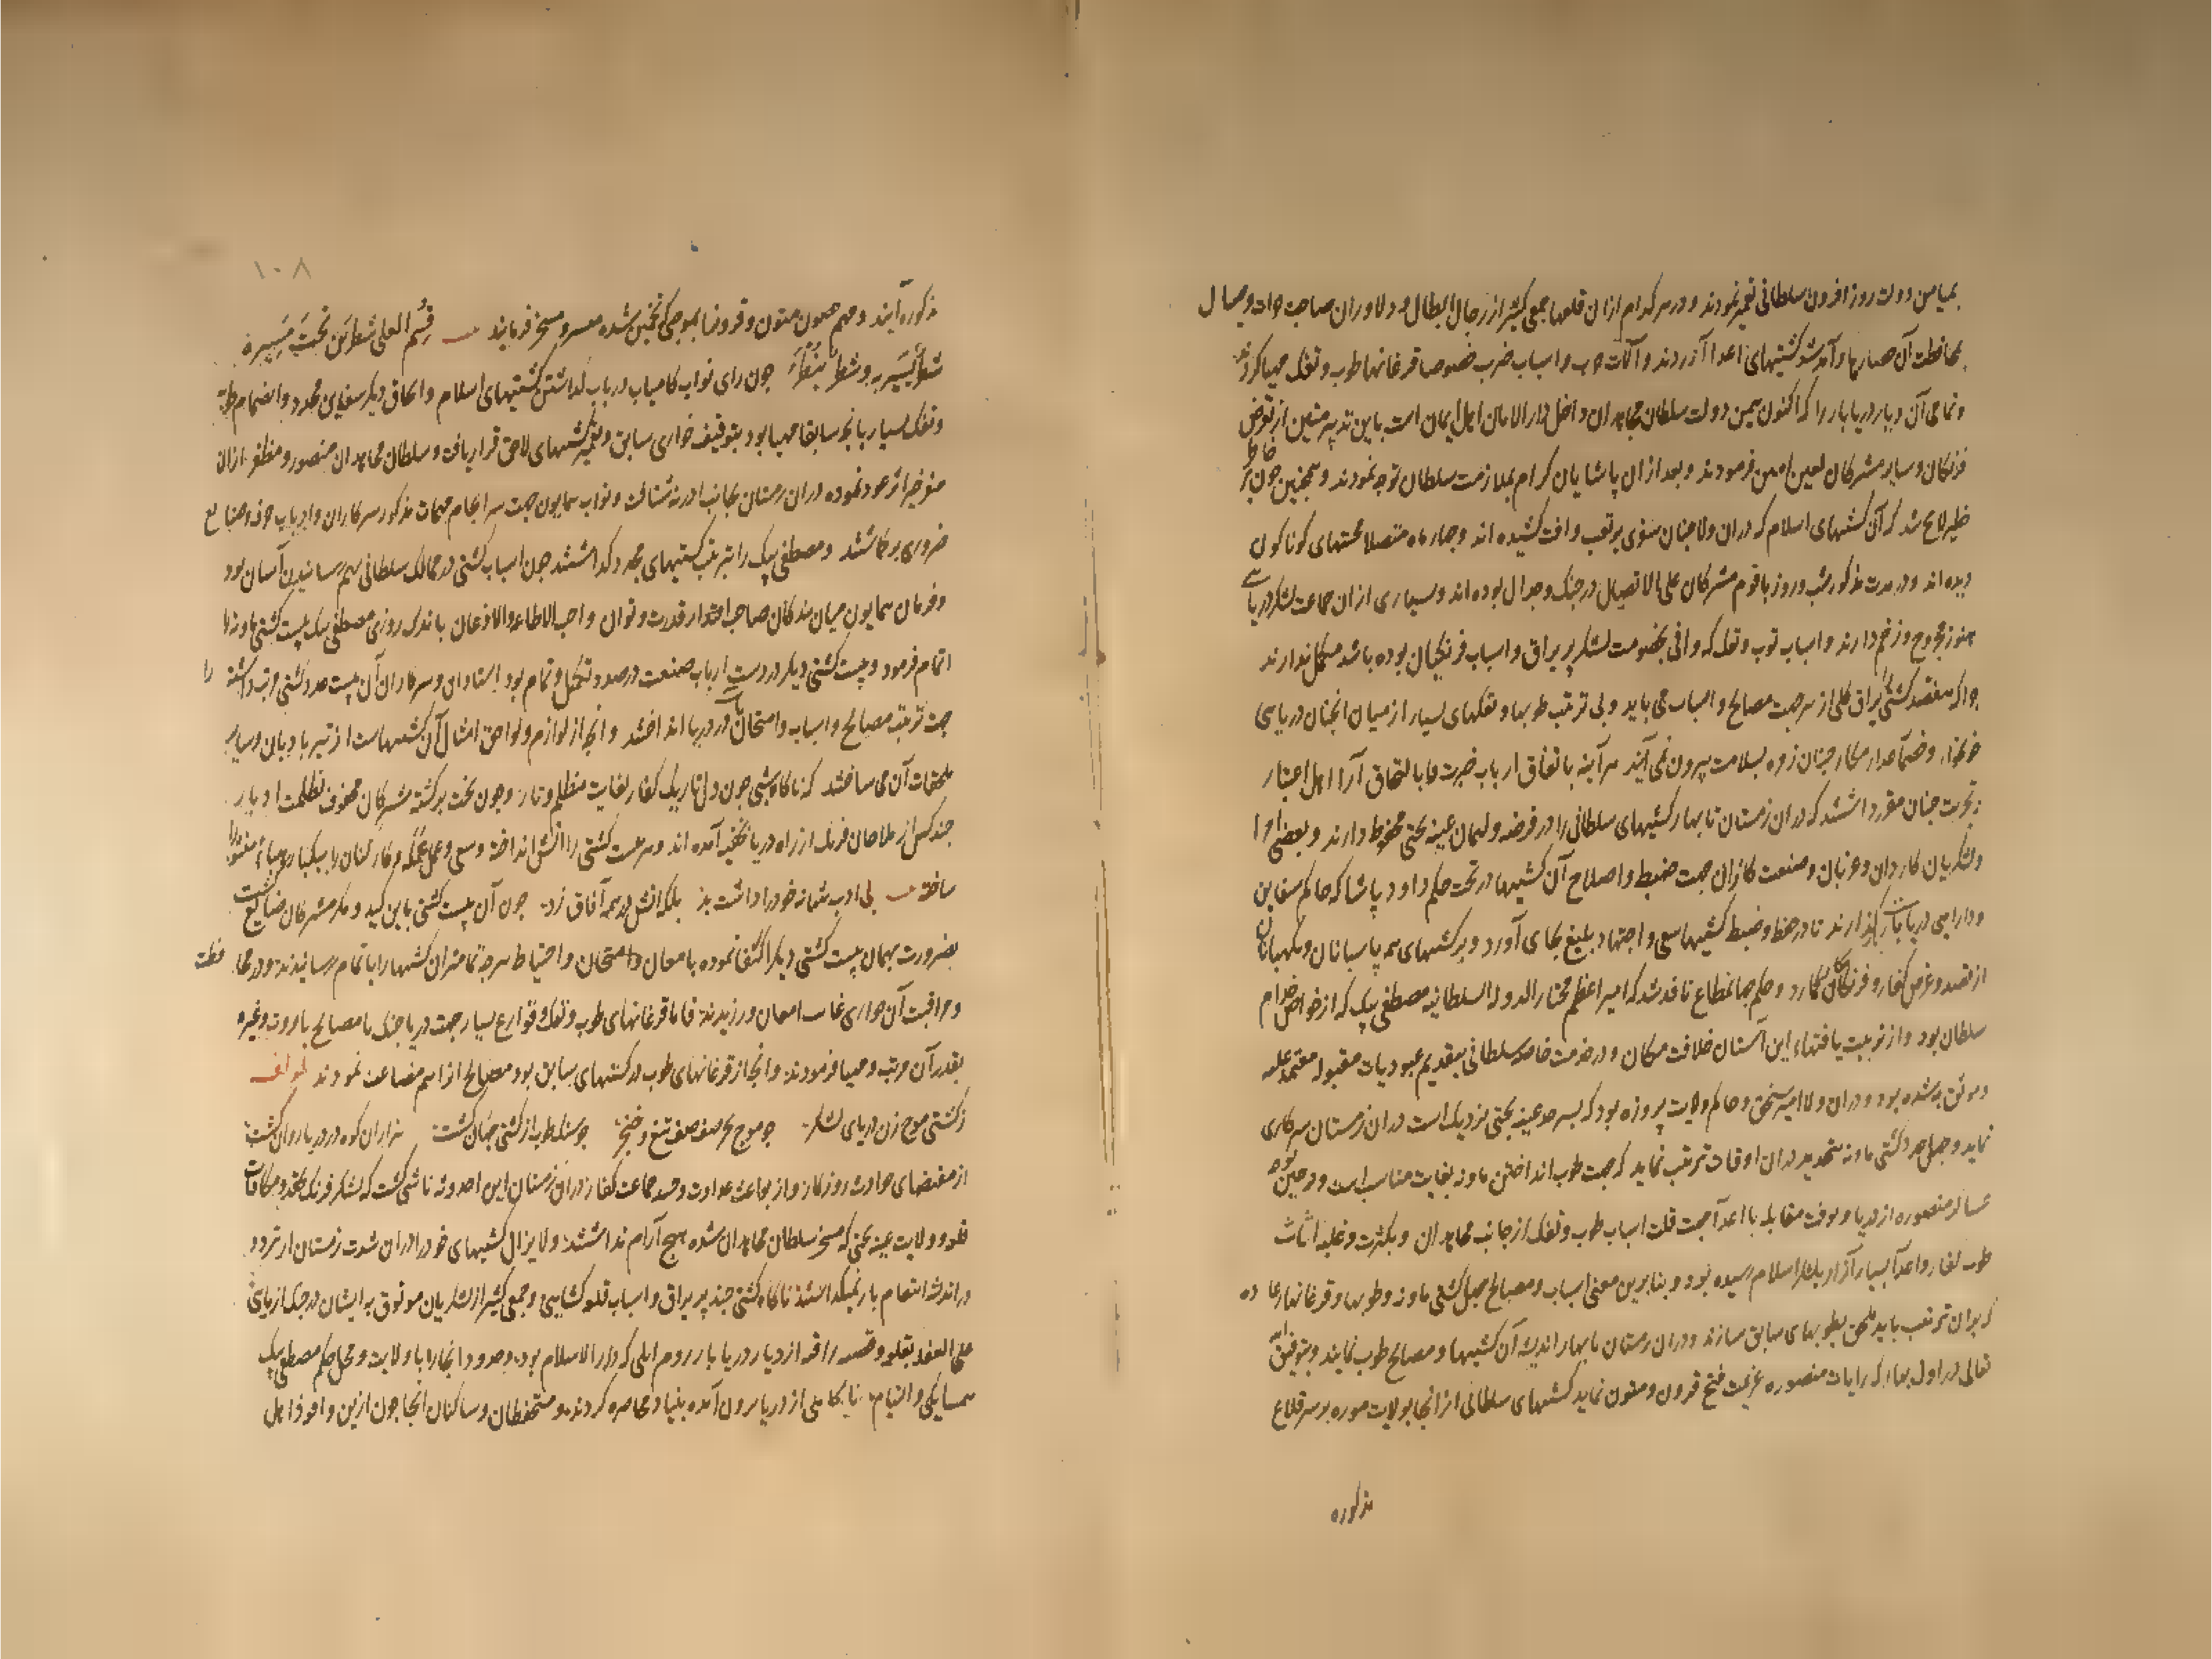 بمیامن دولت روز افزون سلطانی تعمیر نمودند و در هر کدام ازان قلعها جمعی کثیر از رجال ابطال و دلاوران صاحب
بمحافظت آن حصارها و آمد شو کشتیهای اعدا آزردند و آلات حرب و اسباب ضرب خصوصا قرغانها طوب و تفک مهیا کرد
و تمامی آن دیار دریا بار را که اکنون بیمن دولت سلطان مجاهدان داخل دار الامان اهل ایمان است باین تدبیر متین از تعرض
فرنکان و سایر مشرکان لعین ایمن فرمودند و بعد ازان پاشایان کرام بملازمت سلطان توجه نمودند و همچنین چون بر خاطر
خطیر لایح شد که آن کشتیهای اسلام که دران ولا چنان سفری پر تعب وافت کشیده اند و چهار ماه متصلا محنتهای کوناکون
دیده اند و در مدت مذکور شب و روز با قوم مشرکان علی الاتصال در جنک و جدال بوده اند و بسیاری ازان جماعت لشکر دریایی
هنوز مجروح و زخم دارند و اسباب توب و تفک که وافی بخصومت لشکر پر یراق و اسباب فرنکیان بوده باشد مکمل ندارند
چرا که سیصد کشتی یراق کلی از هر جهت مصالح و اسباب می باید و بی ترتیب طوبها و تفکهای بسیار از میان انچنان دریای
خونخوار و خصم غدار مکار چنان زوه بسلامت بیرون نمی آیند هر آینه باتفاق ارباب خبرت و بالتحاق آرا اهل اختبار
و تجربت چنان مقرر داشتند که دران زمستان تا بهار کشتیهای سلطانی را در فرضه و لیمان عینه بختی محفوظ دارند و بعضی امرا
و لشکریان کاردان و عزبان و صنعت کاران جهت ضبط و اصلاح آن کشتیها در تحت حکم داود پاشا که حاکم سفاین
و دارایی دریا بار کذارند تا در حفظ و ضبط کشتیها سعی و اجتهاد بلیغ بجای آورد و بر کشتیهای همه پاسبانان و نکهبانان
از قصد و غرض کفار و فرنکان کمارد و حکم جهانمطاع نافذ شد که امیر اعظم مختار الدولة السلطانیه مصطفی بیک که از خواص خدام
سلطان بود و از تربیت یافتهاء این آستان خلافت مکان و در خدمت خاصه سلطانی بتقدیم عبودیات مقبوله معتمد علیه
و موثق به شده بود و دران ولا امیر سنجق و حاکم ولایت پروزه بود که بسرحد عینه بختی نزدیک است دران زمستان سرکاری
نماید و چهل عدد کشتی ماونه بتجدید دران اوقات ترتیب نماید که جهت طوب انداختن ماونه بغایت مناسب است و در حین توجه
عساکر منصوره از دریا و وقت مقابله با اعدا جهت قلت اسباب طوب و تفک از جانب مجاهدان و بکثرت و غلبه اثاث
طوب کفار و اعدا بسیار آزار بلشکر اسلام رسیده بود و بنابرین معنی اسباب و مصالح چهل کشتی ماونه و طوبها و قرغانها
که بران ترتیب باید ملحق بطوبهای سابق سازند و دران زمستان تا بهار اندیشه آن کشتیها و مصالح طوب نمایند و بتوفیق الله
تعالی در اول بهار که رایات منصوره عزیمت فتح قرون و متون نماید کشتیهای سلطانی از انجا بولایت موره بر سر قلاع
مذکوره
١٠٨
مذکوره آیند و مهم حصون متون و قرون را بموجبی که تخمین شده میسر و مسخر فرمایند رقسم العلی شطرین تحت مسیره
شطر یسیر به و شطر ینظر چون رای نواب کامیاب در باب کذاشتن کشتیهای اسلام و الحاق دیکر سفاین مجدد و انضمام طوب
و تفک بسیار بانچه سابقا مهیا بود بتوقیف جواری سابق و تعمیر کشتیهای لاحق قرار یافت و سلطان مجاهدان منصور و مظفر ازان
عود نموده دران زمستان بجانب ادرنه شتافت و نواب همایون جهت سرانجام مهمات مذکور سرکاران و ارباب حرف و صنایع
ضروری برکماشتند و مصطفی بیک را بترتیب کشتیهای مجدد کذاشتند چون اسباب کشتی در ممالک سلطانی بهم رسانیدن آسان بود
و فرمان همایون میان بندکان صاحب اقتدار قدرت و توان واجب الاطاعه والاذعان باندک روزی مصطفی بیک بیست کشتی ماونه را
اتمام فرمود و بیست کشتی دیکر در دست ارباب صنعت در صدد تکمیل و تمام بود استادان و سرکاران آن بیست عدد کشتی مرتب داشته را
جهت ترتیب مصالح و اسباب و امتحان آن در دریا انداختند و انچه از لوازم و لواحق امثال آن کشتیهاست از تیر بادبان و سایر
ملحقات آن می ساختند که ناکاه شبی چون دل تاریک کفار بغایت مظلم و تار و چون بخت برکشته مشرکان محفوف بظلمت ادبار
چند کس از ملاحان فرنک از راه دریا آمده اند و هر بیست کشتی را آتش انداخته و سعی و عمل عمله و کارکنان را بیکبار هباء منثورا
ساخته بی ادب تنها نه خود را داشت بد بلکه آتش در همه آفاق زد چون آن بیست کشتی باین کید و مکر مشرکان ضایع کشت
بضرورت بهمان بیست کشتی دیکر اکتفا نموده بامعان و امتحان و احتیاط هر چه تمامتر آن کشتیها را باتمام رسانیدند و در محافظت
و مراقبت آن جواری غایت امعان ورزیدند فاما قرغانهای طوب و تفک و قوارع بسیار جهت دریا جنک با مصالح باروت و غیره
بقدر آن مرتب و مهیا فرمودند و انچه از قرغانهای طوب در کشتیهای سابق بود مصالح انرا هم مضاعف نمودند لمولفه
ز کشتی موج زن دریای لشکر چو موج بحر صف صف تیغ و خنجر چو سنک طوب از کشتی جهان کشت هزاران کوه در دریا روان کشت
از مقتضای حوادث روزکار و از بواعث عداوت و حسد جماعت کفار دران زمستان این احدوثه ناشی کشت که لشکر فرنک
قلعه و ولایت عینه بختی که مسخر سلطان مجاهدان شده هیچ آرام نداشتند و لایزال کشتیهای خود را دران شدت زمستان از تردد
در اندیشه انتقام باز نمیکذاشتند ناکاه کشتی چند پر یراق و اسباب قلعه کشایی و جمعی کثیر از لشکریان موثوق به ایشان در جنک ازمایی
علی الغفله بقلعه و قصبه رافنه از دیار دریا بار روم ایلی که دار الاسلام بود و حدود انجا را با ولایت و محل حکم مصطفی بیک
همسایکی و التیام ناکاهی از دریا بیرون آمده بنیاد محاصره کردند و مستحفظان و ساکنان انجا چون ازین واقعه اهل